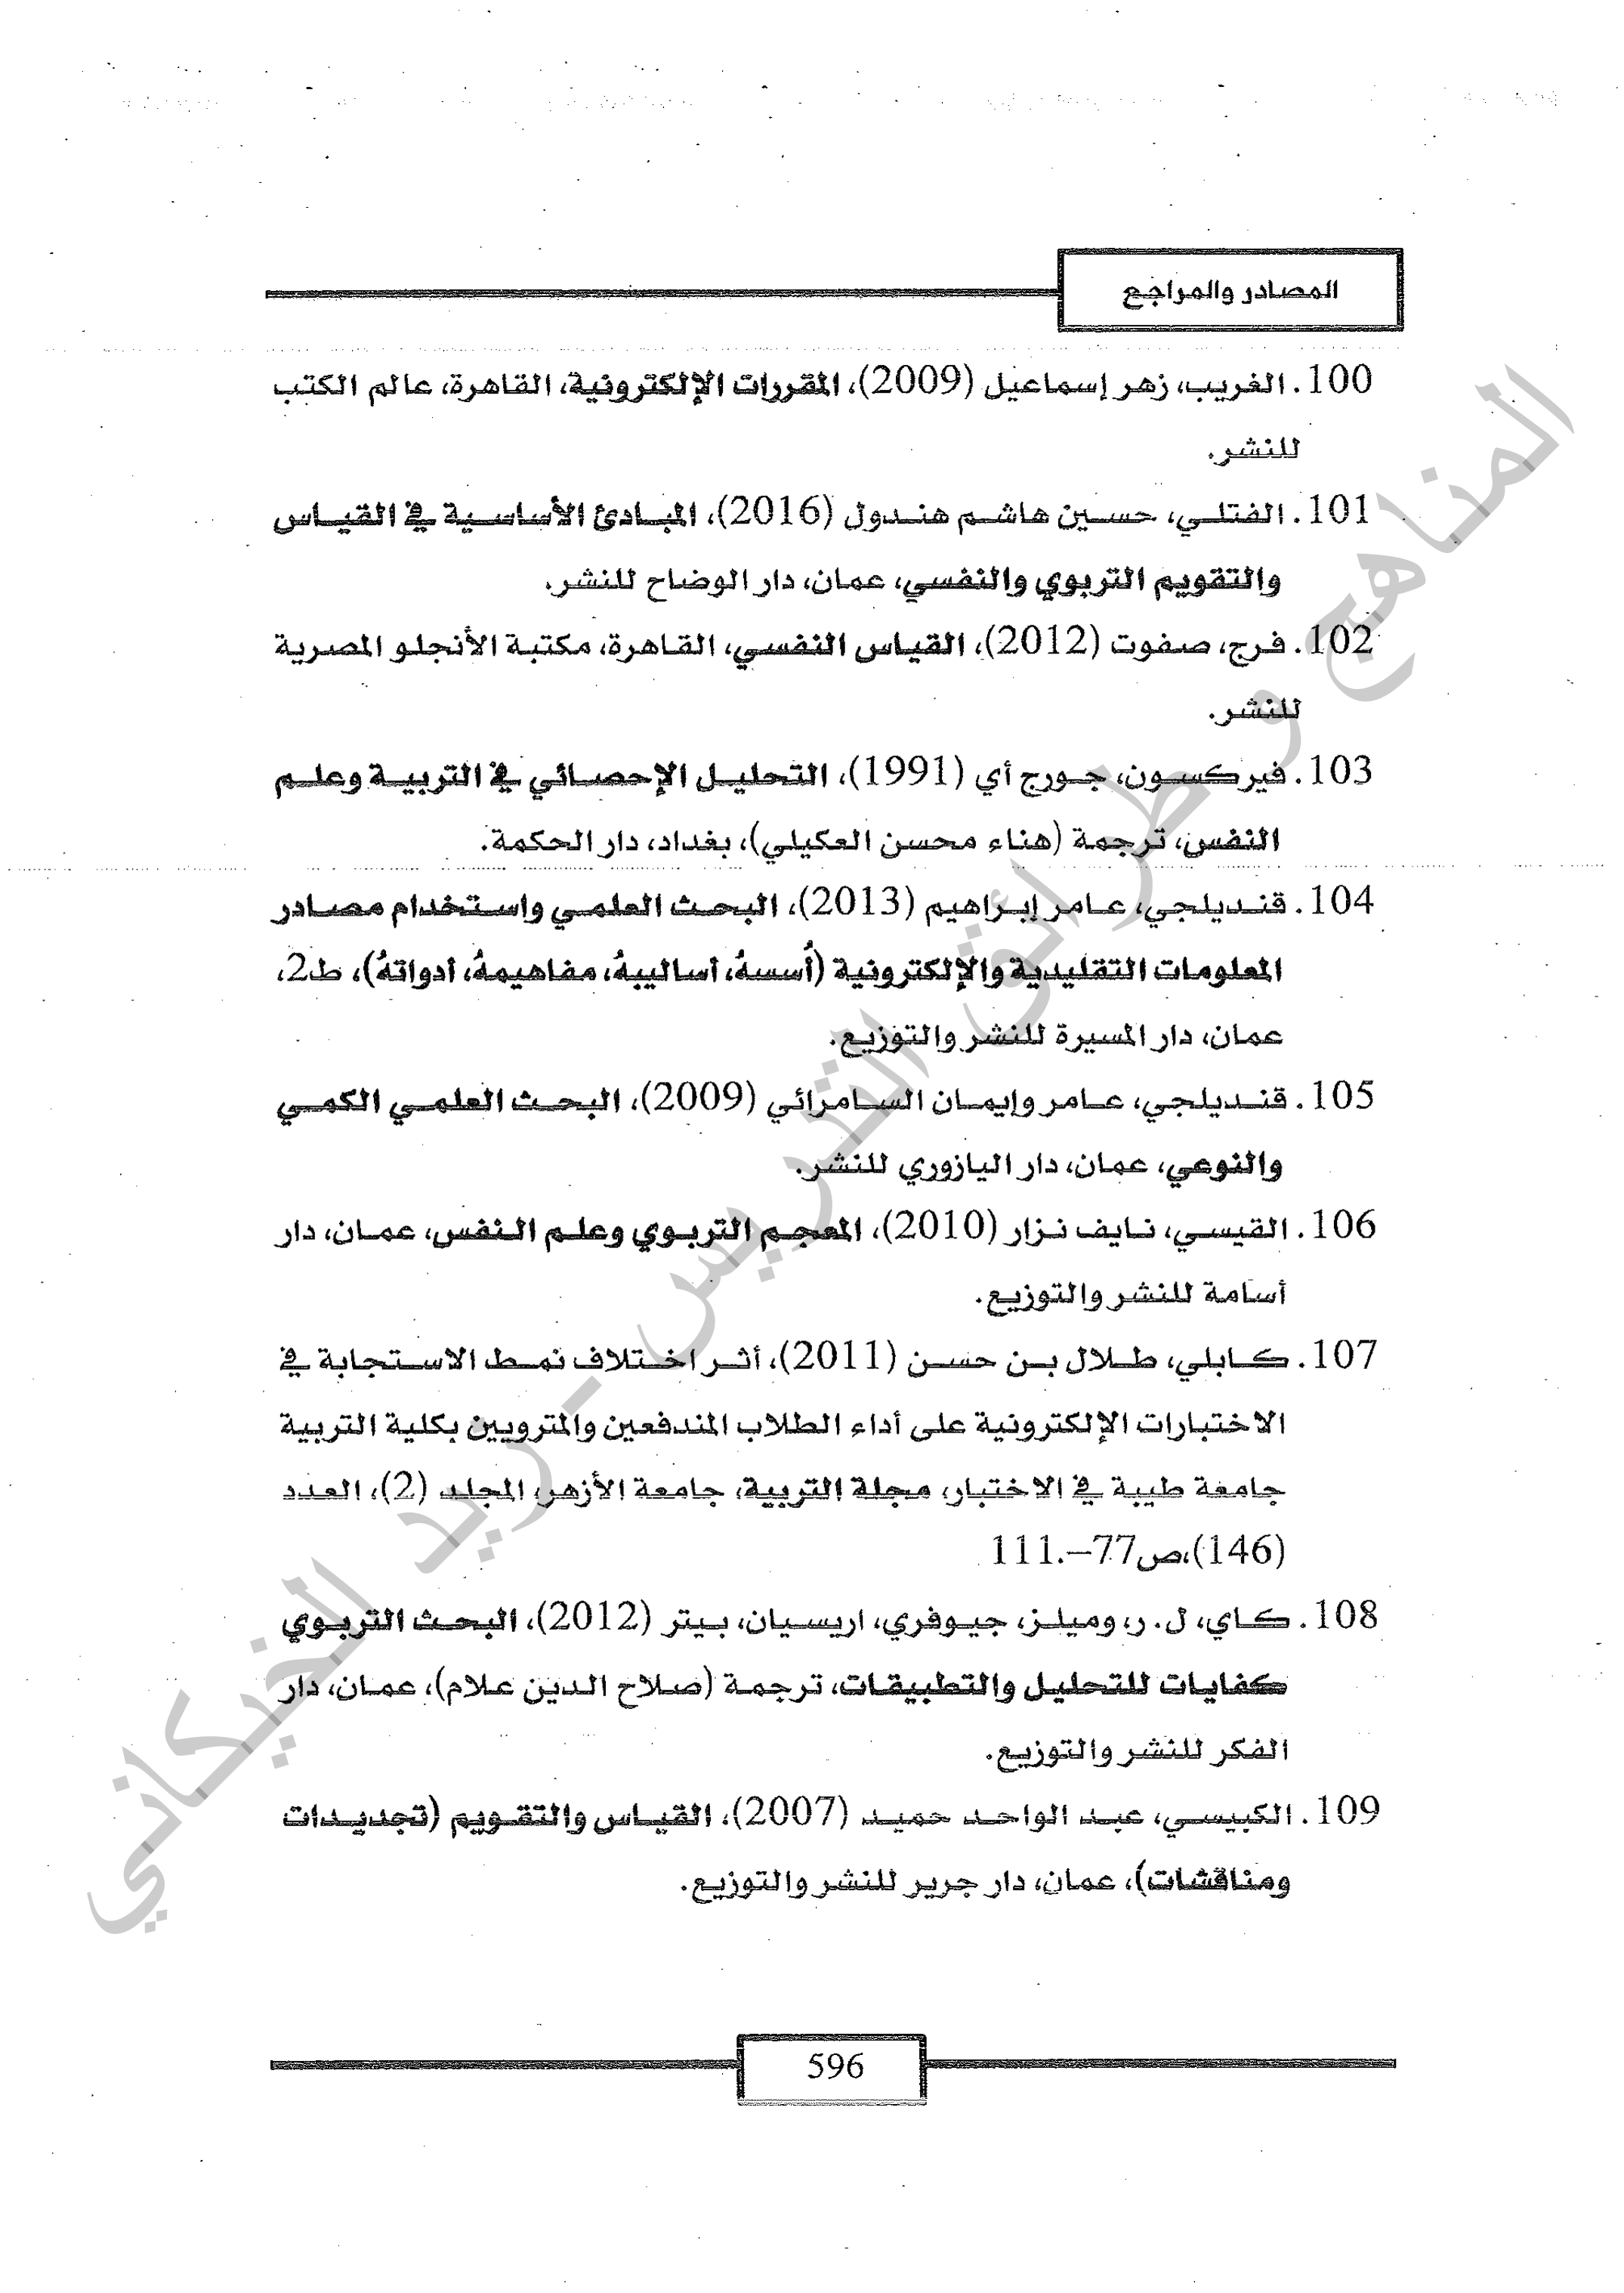 المصادر والمراجع
100. الغريب، زهر إسماعيل (2009)، المقررات الإلكترونية، القاهرة، عالم الكتب
للنشر.
101. الفتلي، حسين هاشم هندول (2016)، المبادئ الأساسية في القياس
والتقويم التربوي والنفسي، عمان، دار الوضاح للنشر.
102. فرج، صفوت (2012)، القياس النفسي، القاهرة، مكتبة الأنجلو المصرية
للنشر.
103. فيركسون، جورج أي (1991)، التحليل الإحصائي في التربية وعلم
النفس، ترجمة (هناء محسن العكيلي)، بغداد، دار الحكمة.
104. قنديلجي، عامر إبراهيم (2013)، البحث العلمي واستخدام مصادر
المعلومات التقليدية والإلكترونية (أُسسهُ، أساليبهُ، مفاهيمهُ، أدواتهُ)، ط2،
عمان، دار المسيرة للنشر والتوزيع.
105. قنديلجي، عامر وإيمان السامرائي (2009)، البحث العلمي الكمي
والنوعي، عمان، دار اليازوري للنشر.
106. القيسي، نايف نزار (2010)، المعجم التربوي وعلم النفس، عمان، دار
أسامة للنشر والتوزيع.
107. كابلي، طلال بن حسن (2011)، أثر اختلاف نمط الاستجابة في
الاختبارات الإلكترونية على أداء الطلاب المندفعين والمترويين بكلية التربية
جامعة طيبة في الاختبار، مجلة التربية، جامعة الأزهر، المجلد (2)، العدد
(146)،ص77–111.
108. كاي، ل. ر، وميلز، جيوفري، اريسيان، بيتر (2012)، البحث التربوي
كفايات للتحليل والتطبيقات، ترجمة (صلاح الدين علام)، عمان، دار
الفكر للنشر والتوزيع.
109. الكبيسي، عبد الواحد حميد (2007)، القياس والتقويم (تجديدات
ومناقشات)، عمان، دار جرير للنشر والتوزيع.
596
المناهج و طرائق التدريس - ريد الخيكاني